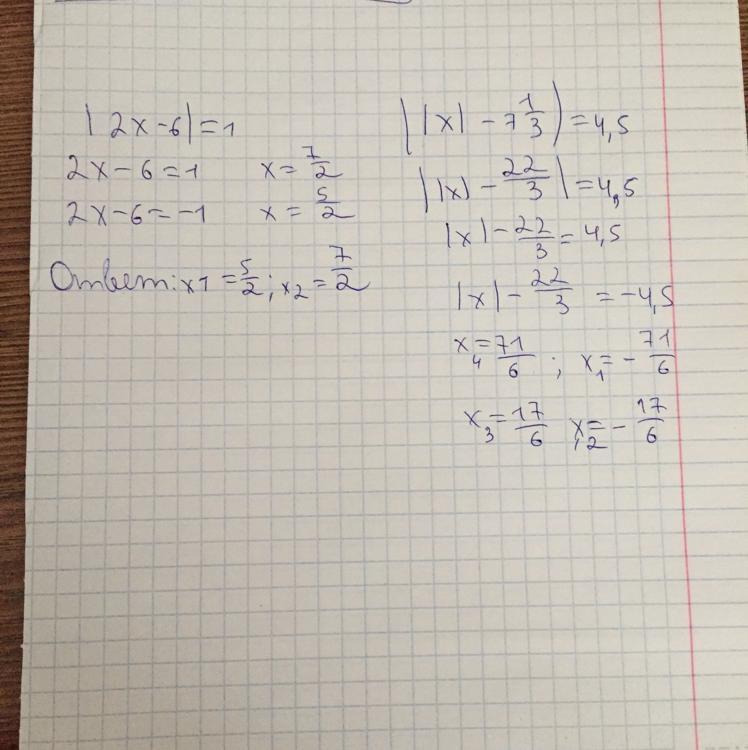 |2x-6|=1
2x-6=1 x=7/2
2x-6=-1 x=5/2
Ответ: x1=5/2; x2=7/2
||x|-7 1/3|=4,5
||x|-22/3|=4,5
|x|-22/3=4,5
|x|-22/3=-4,5
x4=71/6; x1=-71/6
x3=17/6 x2=-17/6